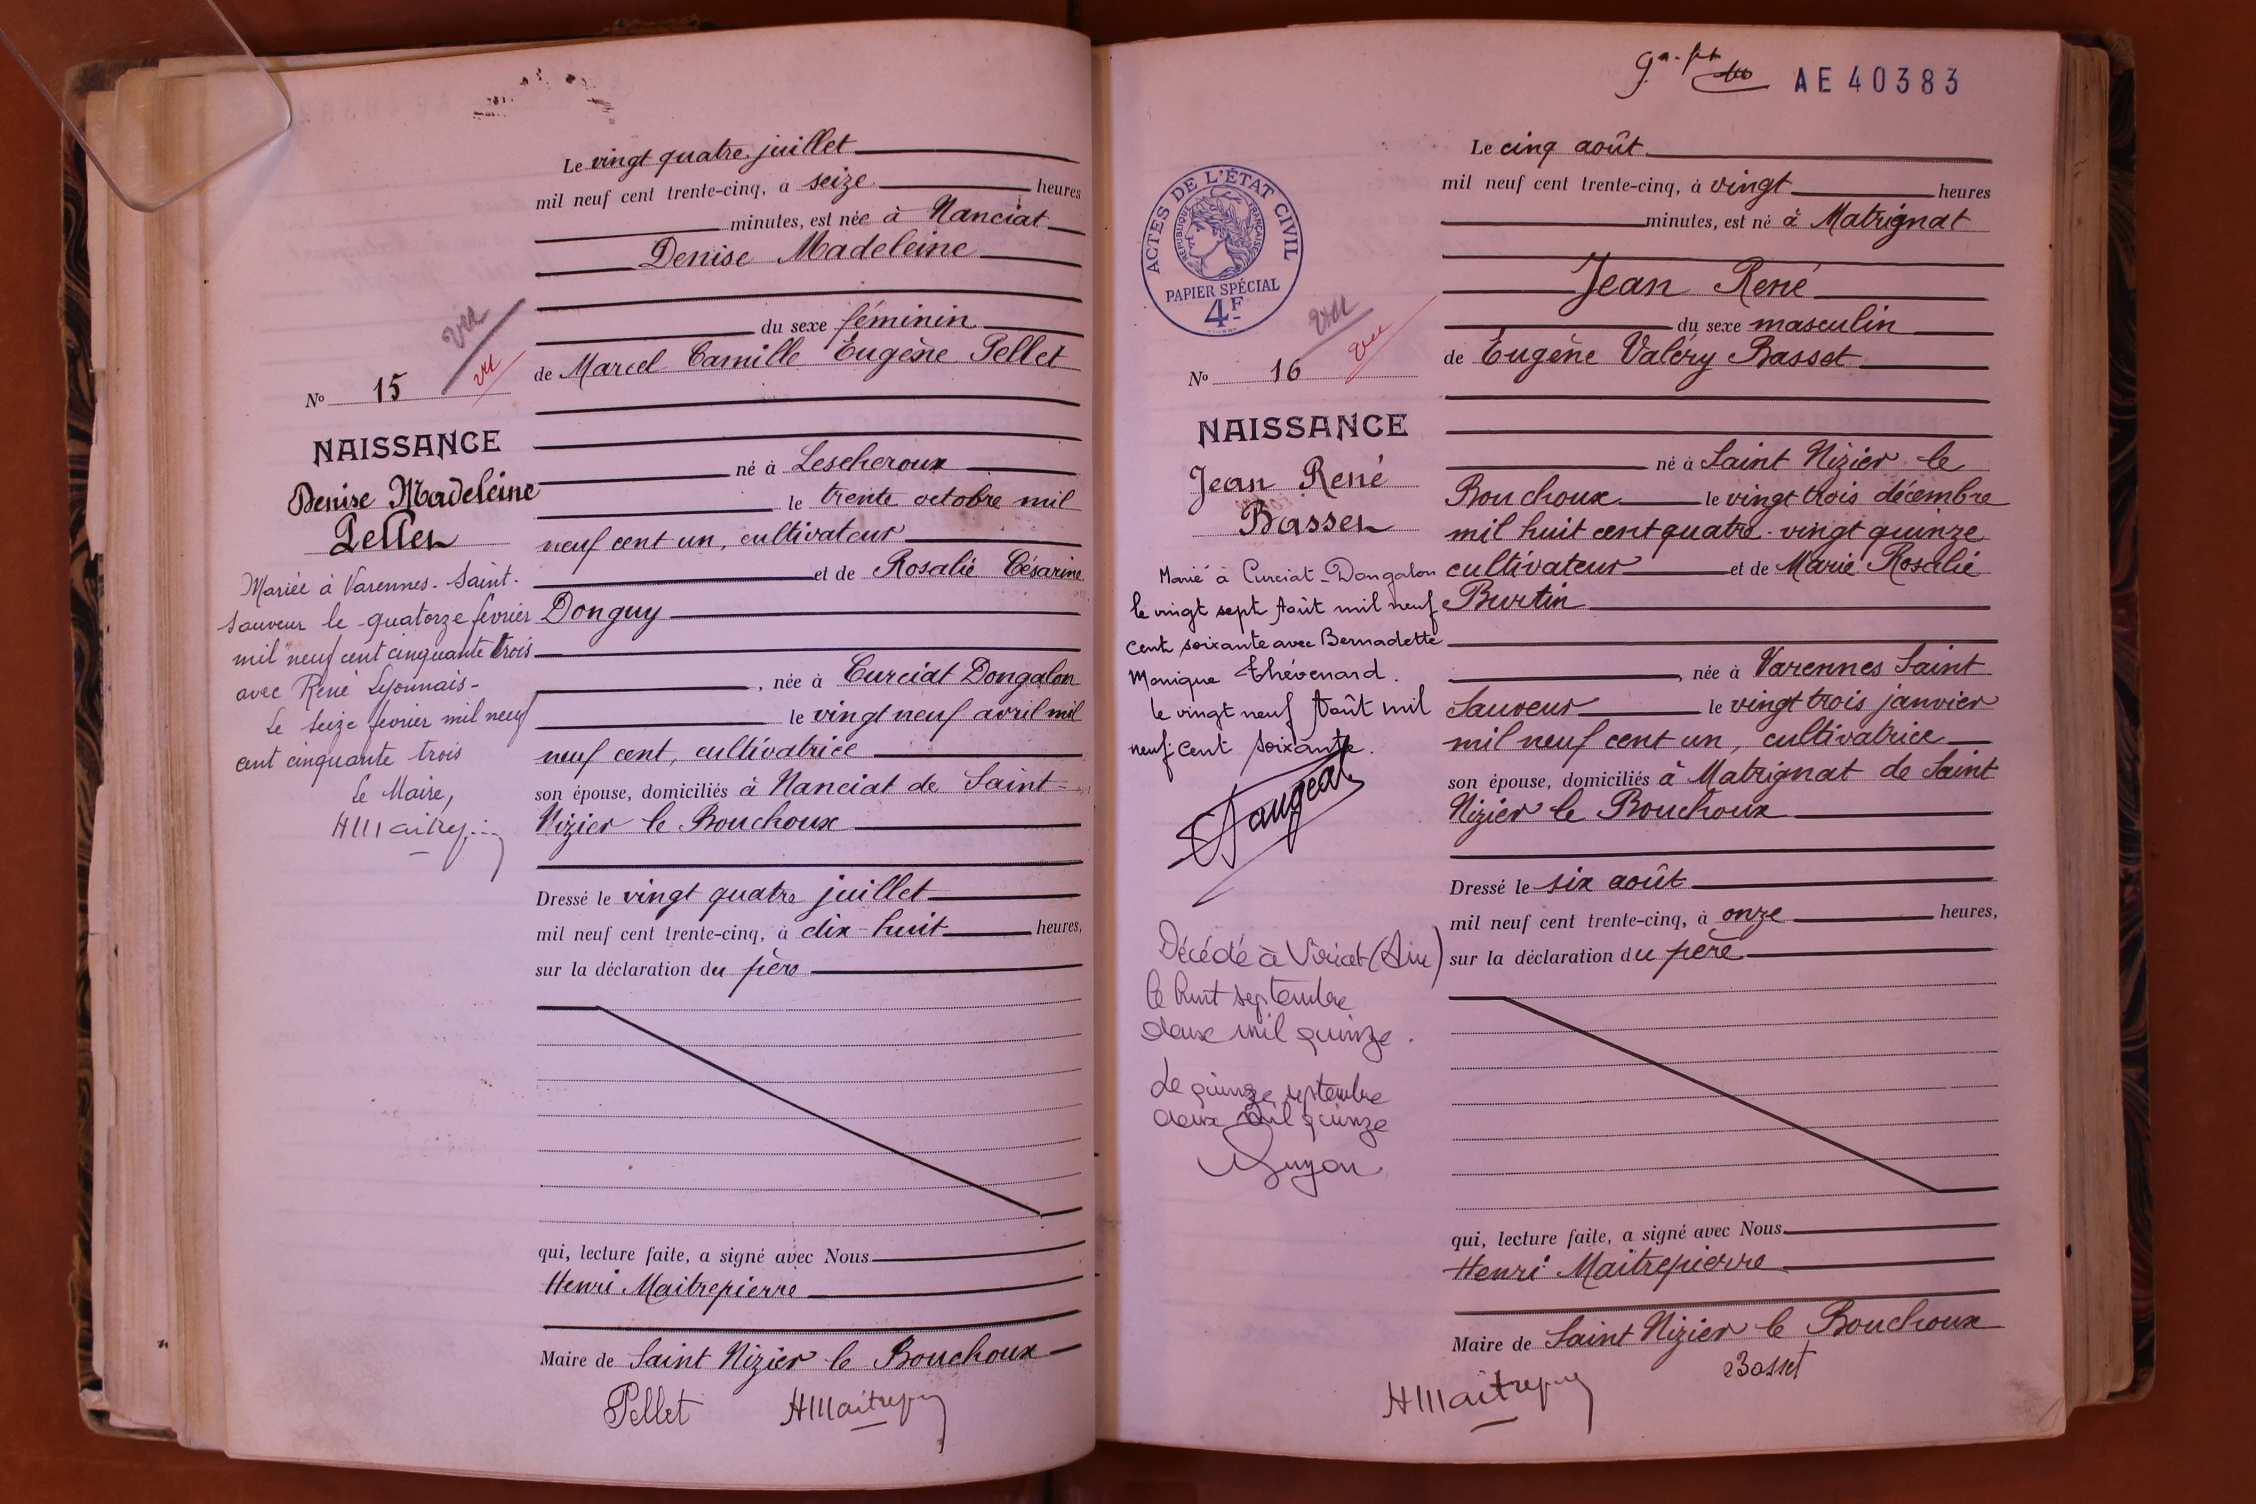 Le vingt quatre juillet
mil neuf cent trente-cinq, à seize heures
minutes, est née à Nanciat
Denise Madeleine
du sexe féminin
de Marcel Camille Eugène Pellet
né à Lescheroux
le trente octobre mil
neuf cent un, cultivateur
et de Rosalie Césarine
Donguy
, née à Curciat Dongalon
le vingt neuf avril mil
neuf cent, cultivatrice
son épouse, domiciliés à Nanciat de Saint-
Nizier le Bouchoux
Dressé le vingt quatre juillet
mil neuf cent trente-cinq, à dix-huit heures,
sur la déclaration du père
qui, lecture faite, a signé avec Nous
Henri Maitrepierre
Maire de Saint Nizier le Bouchoux
Pellet HMaitrepierre
vu
vu
No 15
NAISSANCE
Denise Madeleine
Pellet
Mariée à Varennes-Saint-
Sauveur le quatorze février
mil neuf cent cinquante trois
avec René Lyonnais-
Le seize février mil neuf
cent cinquante trois
Le Maire,
HMaitrepierre
AE 40383
Le cinq août
mil neuf cent trente-cinq, à vingt heures
minutes, est né à Matrignat
Jean René
du sexe masculin
de Eugène Valéry Basset
né à Saint Nizier le
Bouchoux le vingt trois décembre
mil huit cent quatre-vingt quinze
cultivateur et de Marie Rosalie
Burtin
, née à Varennes Saint
Sauveur le vingt trois janvier
mil neuf cent un, cultivatrice
son épouse, domiciliés à Matrignat de Saint
Nizier le Bouchoux
Dressé le six août
mil neuf cent trente-cinq, à onze heures,
sur la déclaration du père
qui, lecture faite, a signé avec Nous
Henri Maitrepierre
Maire de Saint Nizier le Bouchoux
Basset
HMaitrepierre
ACTES DE L'ÉTAT CIVIL
RÉPUBLIQUE FRANÇAISE
PAPIER SPÉCIAL
4F
vu
vu
No 16
NAISSANCE
Jean René
Basset
Marié à Curciat-Dongalon
le vingt sept Août mil neuf
cent soixante avec Bernadette
Monique Thévenard.
le vingt neuf Août mil
neuf-cent soixante.
Décédé à Viriat (Ain)
le huit septembre
deux mil quinze.
Le quinze septembre
deux mil quinze
Guyon